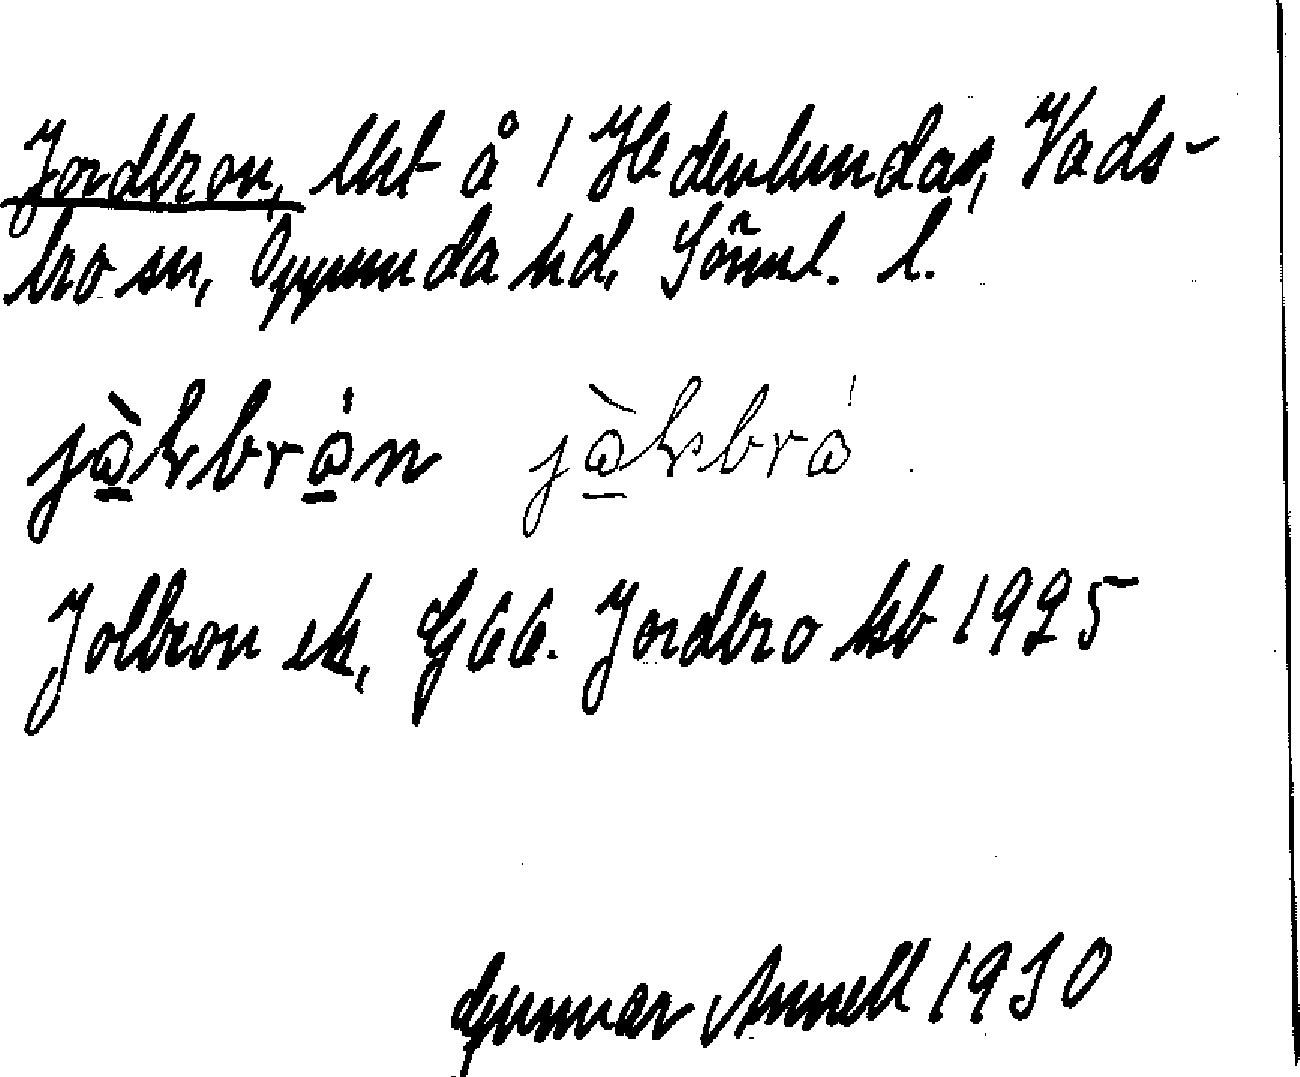 Jordbron, lht å 1 Hedenlundas, Vads-
bro sn, Oppunda hd, Söml. l.
jàkbrán jàkbrá
Jolbron ek, G66. Jordbro kb 1925
Gunnar Annell 1930